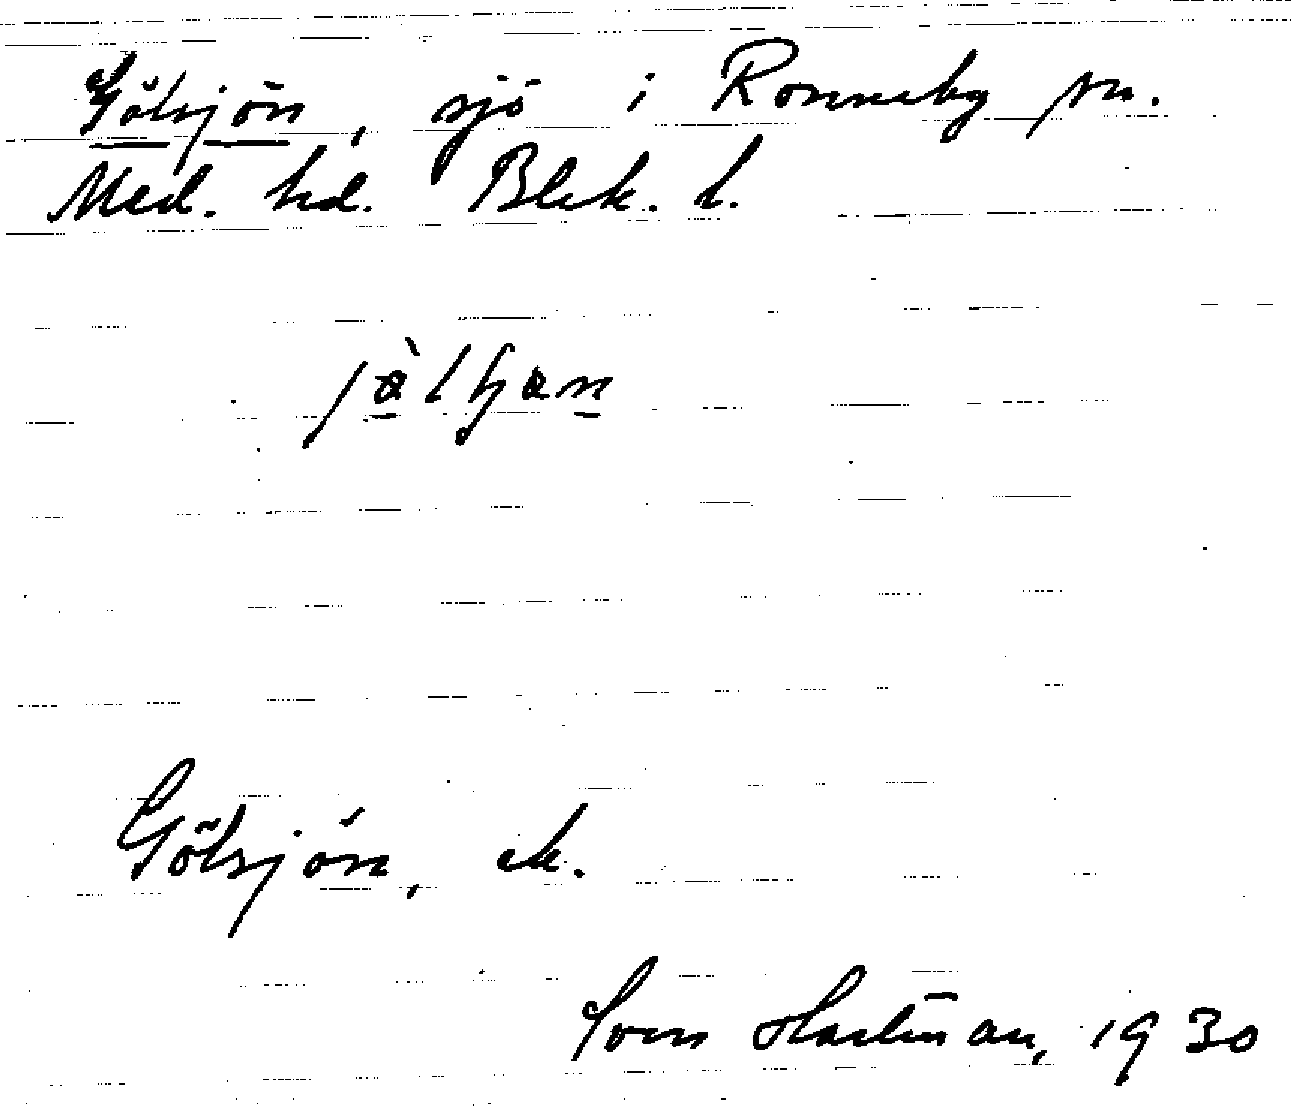 Gölsjön, sjö i Ronneby sn.
Med. hd. Blek. l.
Gölsjön, ek.
Sven Hartman, 1930